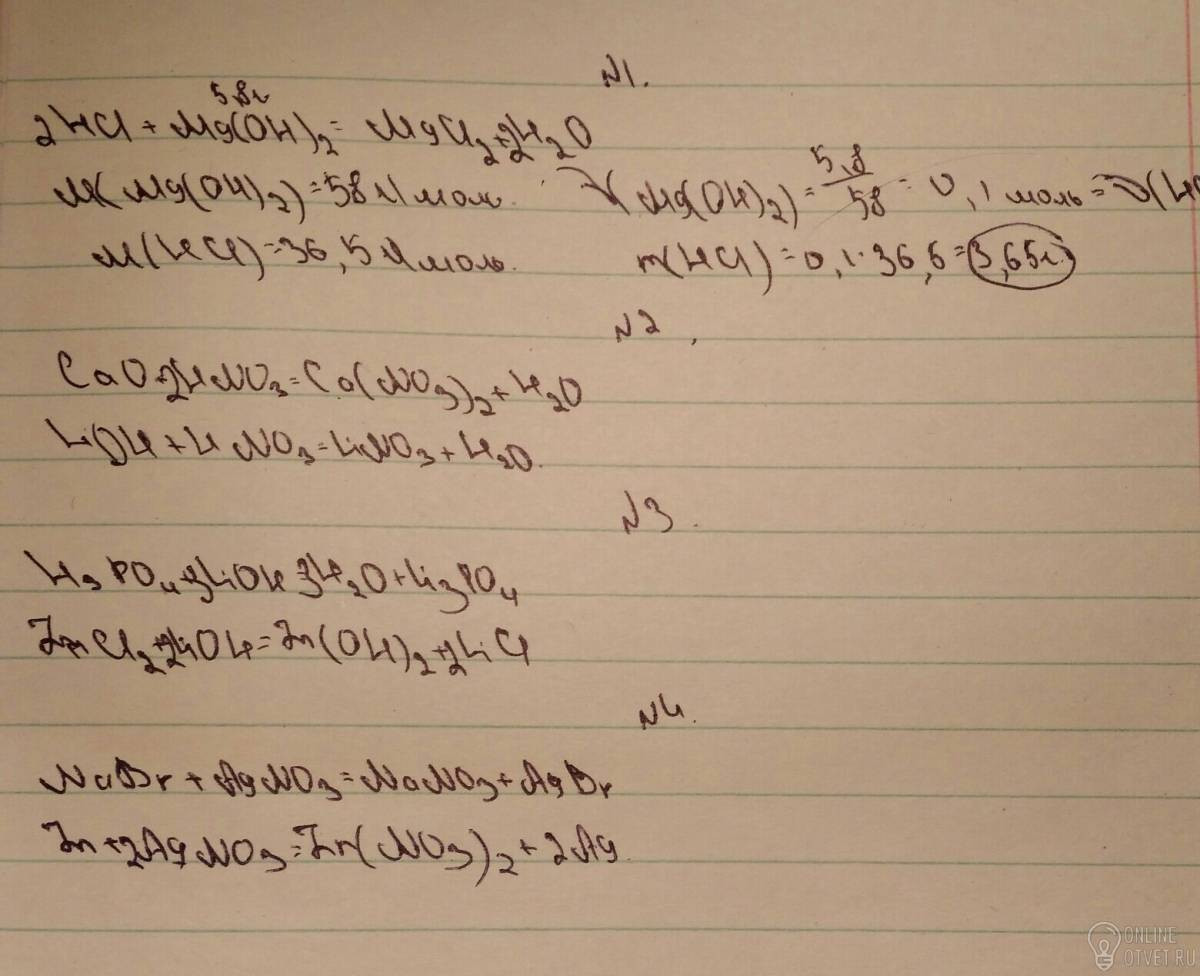 N1.
5,8г
2HCl + Mg(OH)2 = MgCl2 + 2H2O
M(Mg(OH)2) = 58 г/моль. ν(Mg(OH)2) = 5,8/58 = 0,1 моль = ν(HC
M(HCl) = 36,5 г/моль. m(HCl) = 0,1·36,5 = 3,65г
N2.
CaO + 2HNO3 = Ca(NO3)2 + H2O
LiOH + HNO3 = LiNO3 + H2O.
N3.
H3PO4 + 3LiOH = 3H2O + Li3PO4
ZnCl2 + 2LiOH = Zn(OH)2 + 2LiCl
N4.
NaBr + AgNO3 = NaNO3 + AgBr
Zn + 2AgNO3 = Zn(NO3)2 + 2Ag.
ONLINE
OTVET.RU